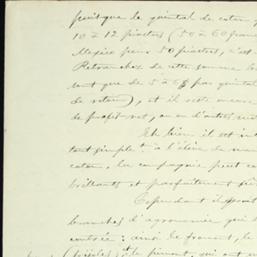 puisque le quintal de coton
10 à 12 piastres (50 à 60 francs
Mexico pour 50 piastres, c'est
Retranchez de cette somme les
sont que de 5 à 6 f par quintal
de retour), et il reste encore
de profit net, ou en d'autres
Eh bien il est
tout simplemt à l'élève de
coton, la compagnie peut
brillants et parfaitement
Cependant il
branches d'agronomie qui
contrée: ainsi le froment, le
le piment, qui ont